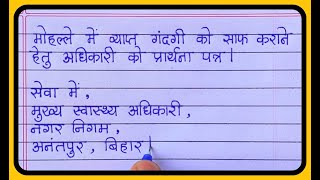 मोहल्ले में व्याप्त गंदगी को साफ कराने
हेतु अधिकारी को प्रार्थना पत्र।
सेवा में,
मुख्य स्वास्थ्य अधिकारी,
नगर निगम,
अनंतपुर, बिहार।